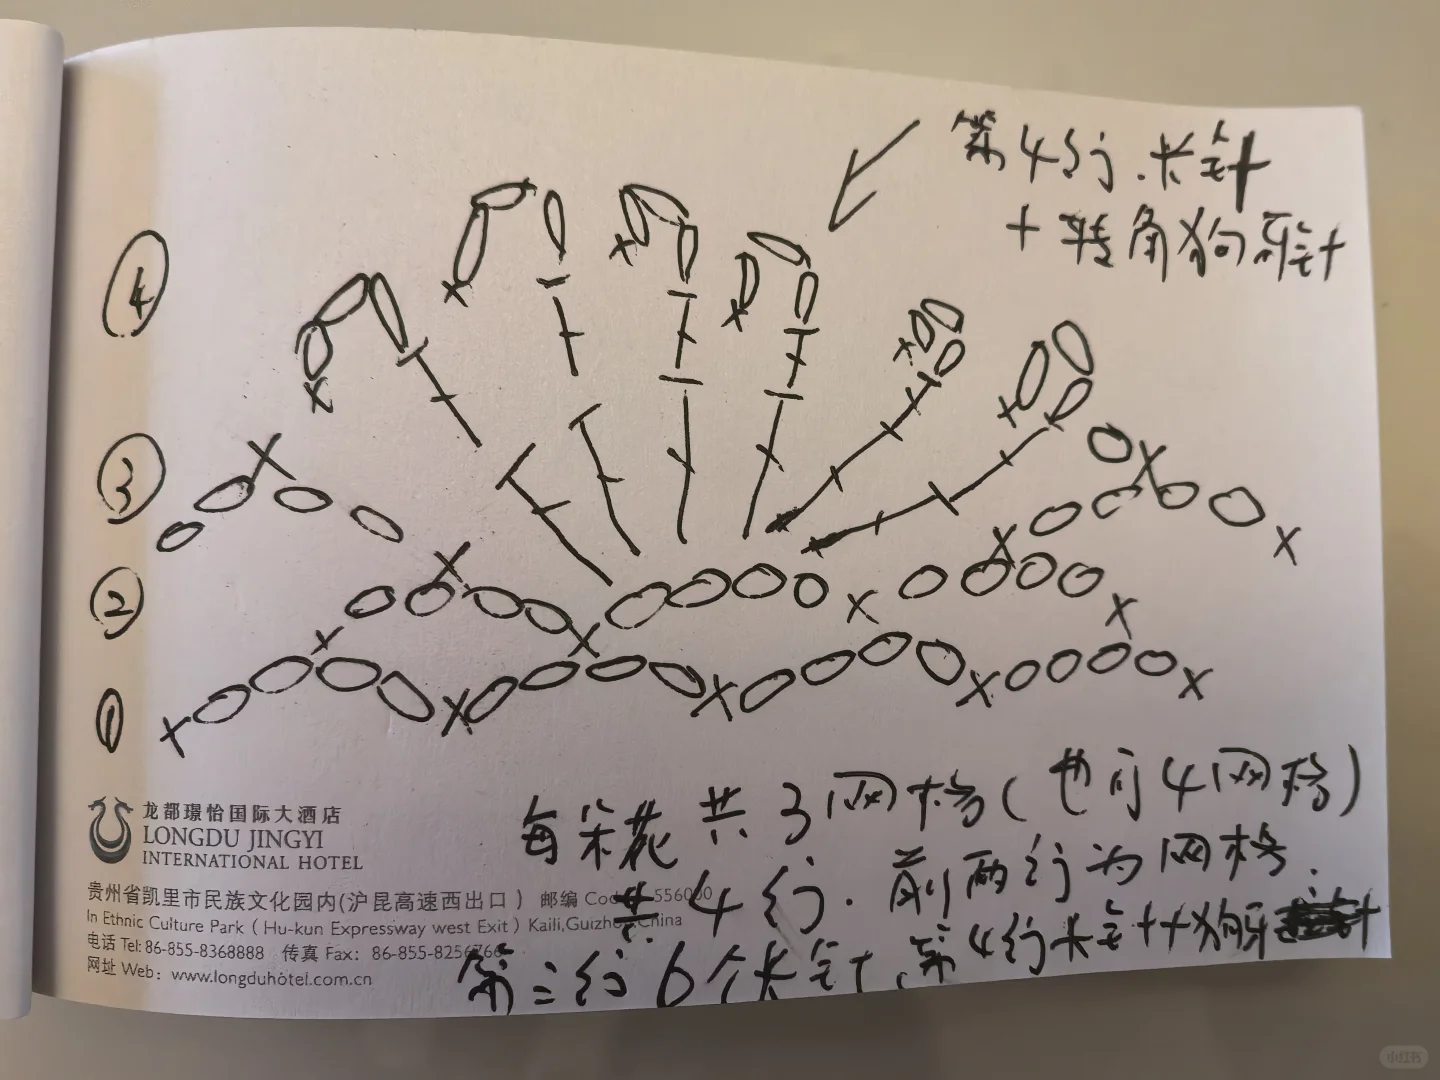 第4行.长针
+转角狗牙针
④
③
②
①
每朵花共3网格(也可4网格)
共4行.前两行为网格.
第三行6个长针、第4行长针+狗牙针
龙都璟怡国际大酒店
LONGDU JINGYI
INTERNATIONAL HOTEL
贵州省凯里市民族文化园内(沪昆高速西出口) 邮编 Code: 556000
In Ethnic Culture Park ( Hu-kun Expressway west Exit ) Kaili,Guizhou,China
电话 Tel: 86-855-8368888 传真 Fax: 86-855-8256766
网址 Web: www.longduhotel.com.cn
小红书